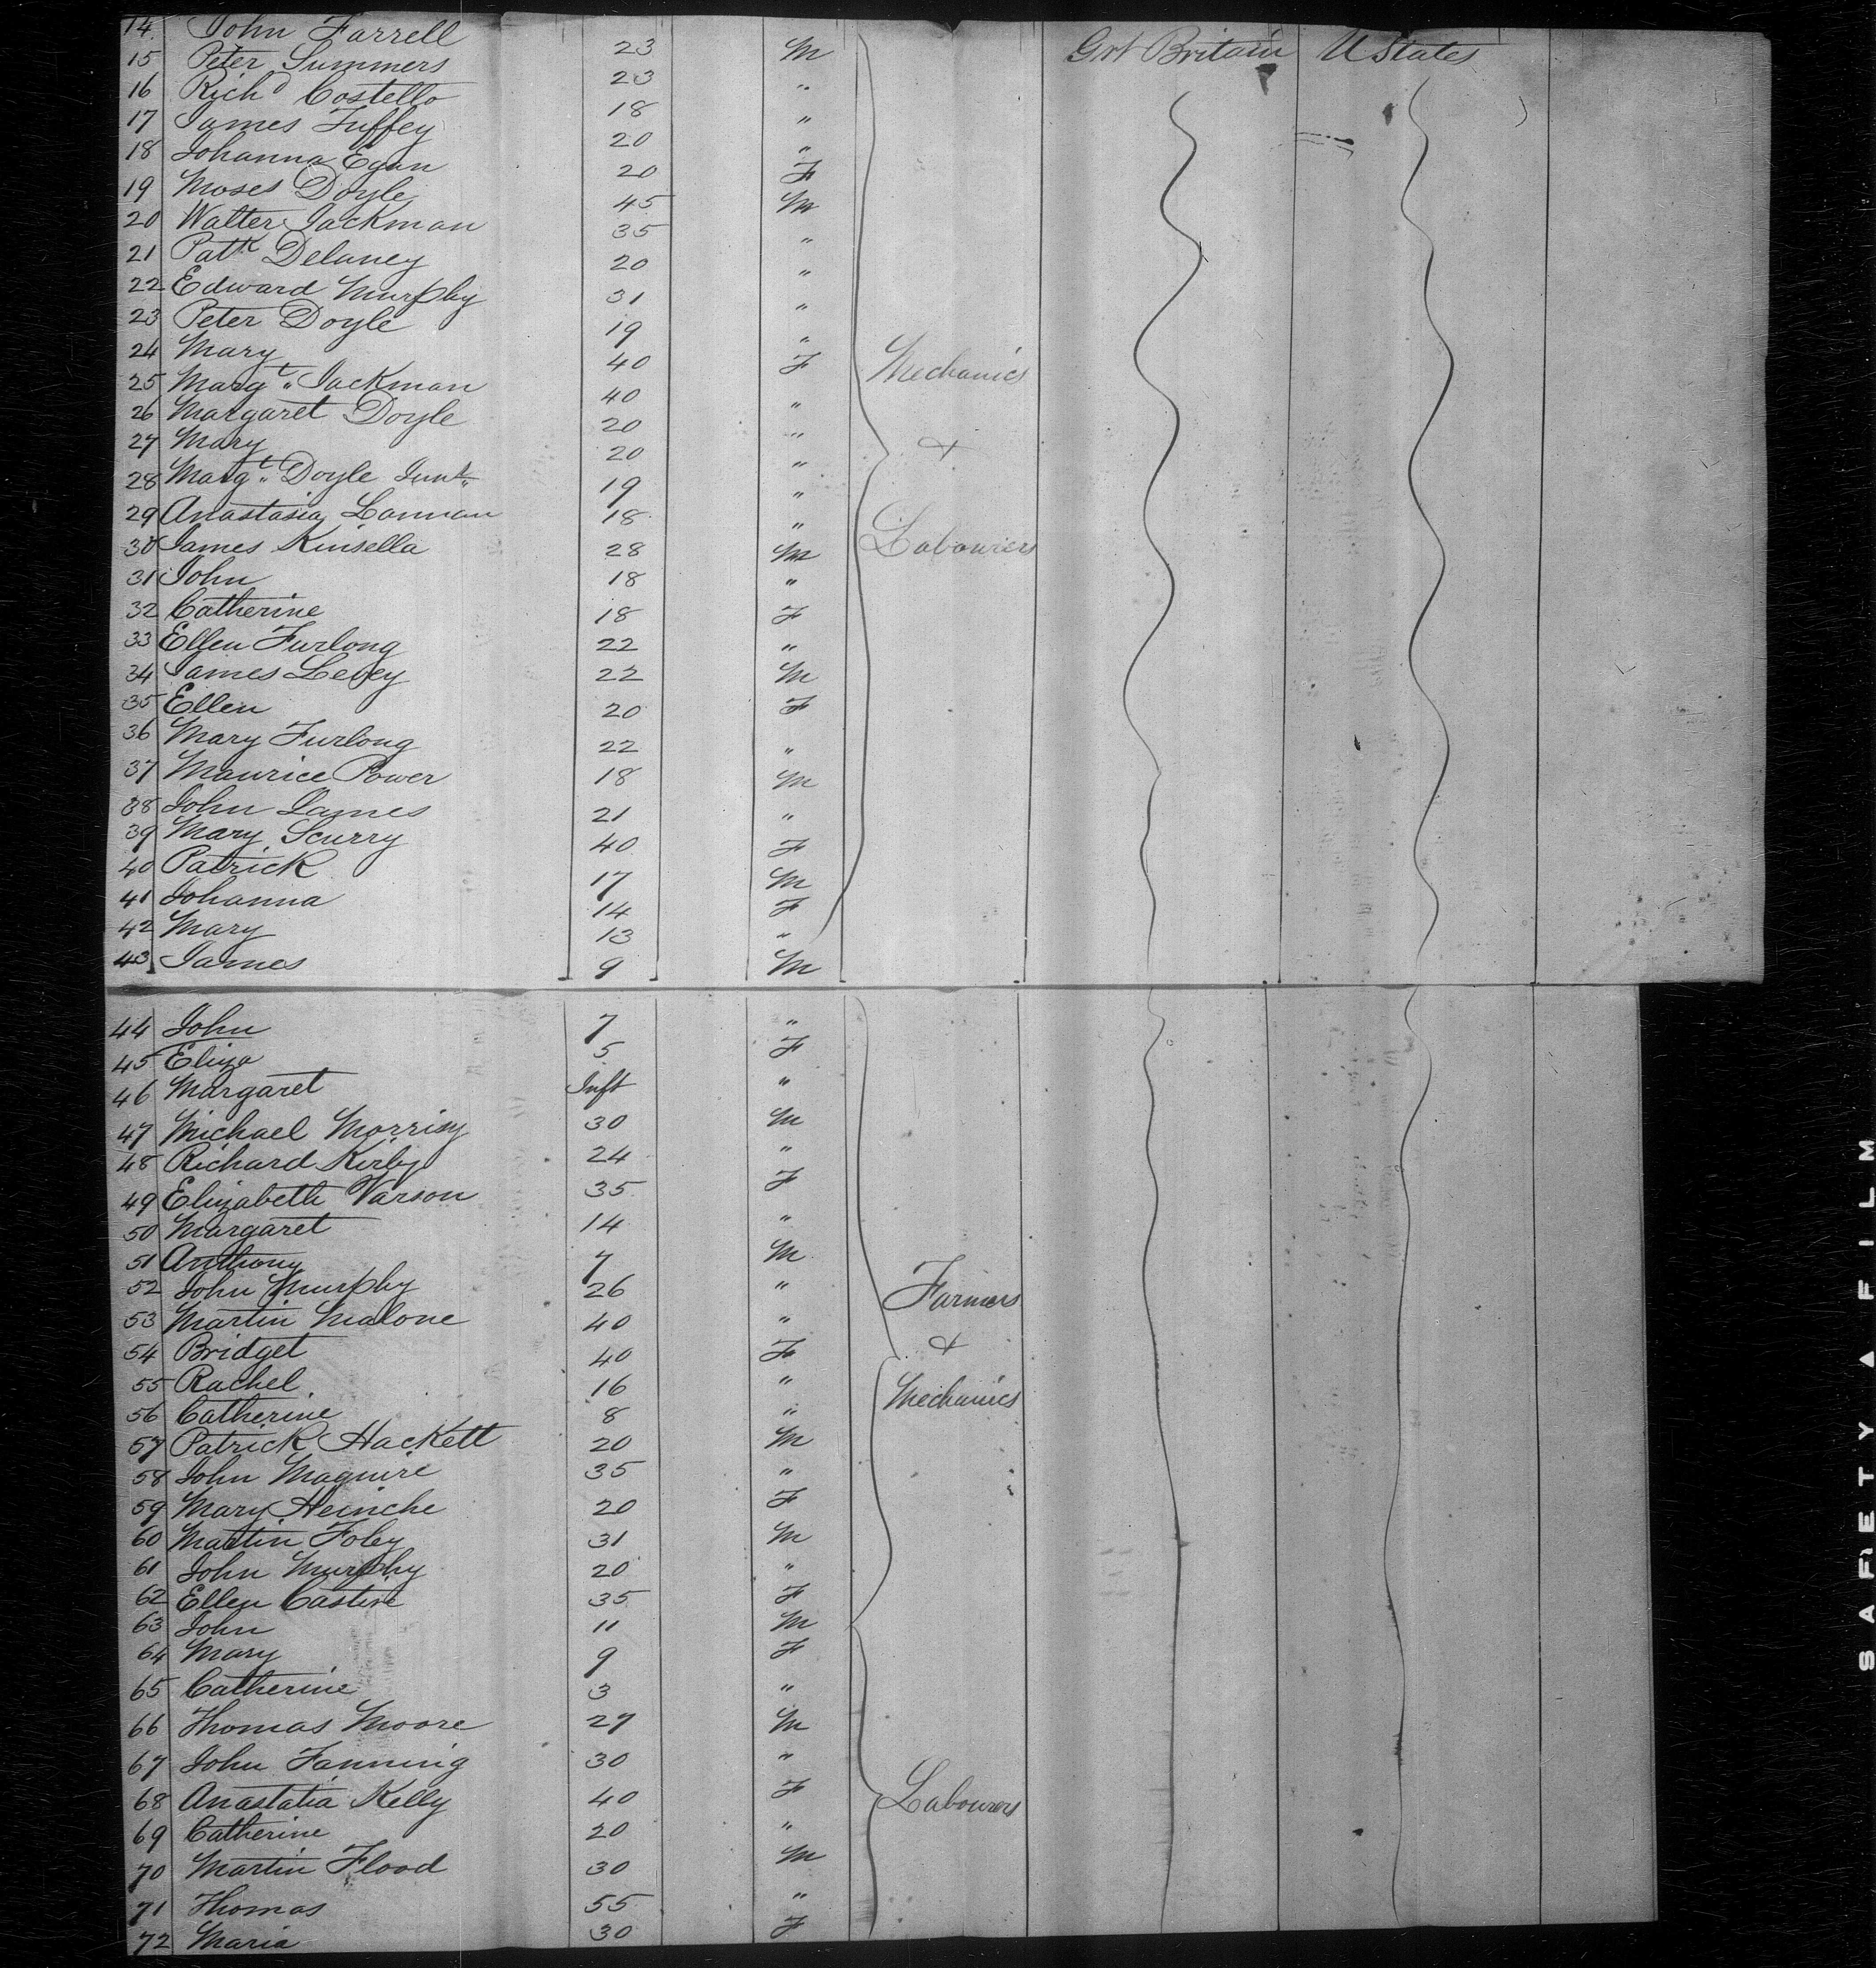 14. John Farrell 23 M Grt Britain U States
15 Peter Summers 23 "
16 Richd Costello 18 "
17 James Tuffey 20 "
18 Johanna Egan 20 F
19 Moses Doyle 45 M
20 Walter Jackman 35 "
21 Patk Delaney 20 "
22 Edward Murphy 31 "
23 Peter Doyle 19 "
24 Mary 40 F Mechanics
25 Margt. Jackman 40 "
26 Margaret Doyle 20 "
27 Mary 20 " +
28 Margt. Doyle Junr. 19 "
29 Anastasia Lannan 18 "
30 James Kinsella 28 M Labourers
31 John 18 "
32 Catherine 18 F
33 Ellen Furlong 22 "
34 James Levey 22 M
35 Ellen 20 F
36 Mary Furlong 22 "
37 Maurice Power 18 M
38 John James 21 "
39 Mary Scurry 40 F
40 Patrick 17 M
41 Johanna 14 F
42 Mary 13 "
43 James 9 M
44 John 7 "
45 Eliza 5 F
46 Margaret Inft "
47 Michael Morrisy 30 M
48 Richard Kirby 24 "
49 Elizabeth Varson 35 F
50 Margaret 14 "
51 Anthony 7 M
52 John Murphy 26 " Farmers
53 Martin Malone 40 "
54 Bridget 40 F +
55 Rachel 16 " Mechanics
56 Catherine 8 "
57 Patrick Hackett 20 M
58 John Maguire 35 "
59 Mary Heinche 20 F
60 Martin Foley 31 M
61 John Murphy 20 "
62 Ellen 35 F
63 John 11 M
64 Mary 9 F
65 Catherine 3 "
66 Thomas Moore 27 M
67 John Fanning 30 "
68 Anastatia Kelly 40 F Labourers
69 Catherine 20 "
70 Martin Flood 30 M
71 Thomas 55 "
72 Maria 30 F
SAFETY ▲ FILM